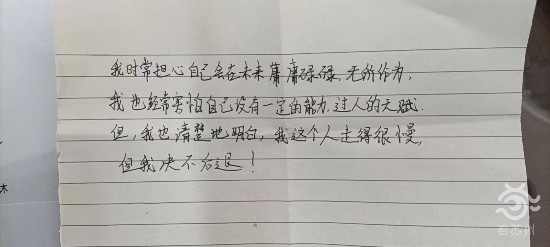 我时常担心自己会在未来庸庸碌碌,无所作为,
我也经常害怕自己没有一定的能力,过人的天赋.
但,我也清楚地明白,我这个人走得很慢,
但我决不后退!
木
看苏州